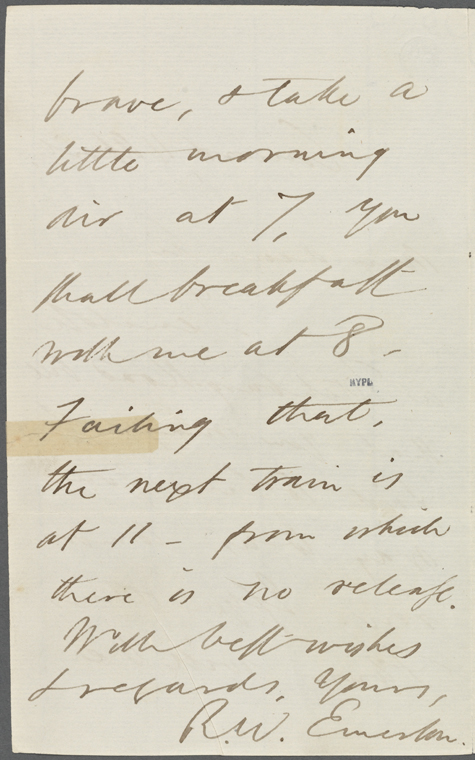 brave, & take a
little morning
air at 7, you
shall breakfast
with me at 8 -
NYPL
Failing that,
the next train is
at 11 - from which
there is no release.
With best wishes
& regards, Yours,
R.W. Emerson.